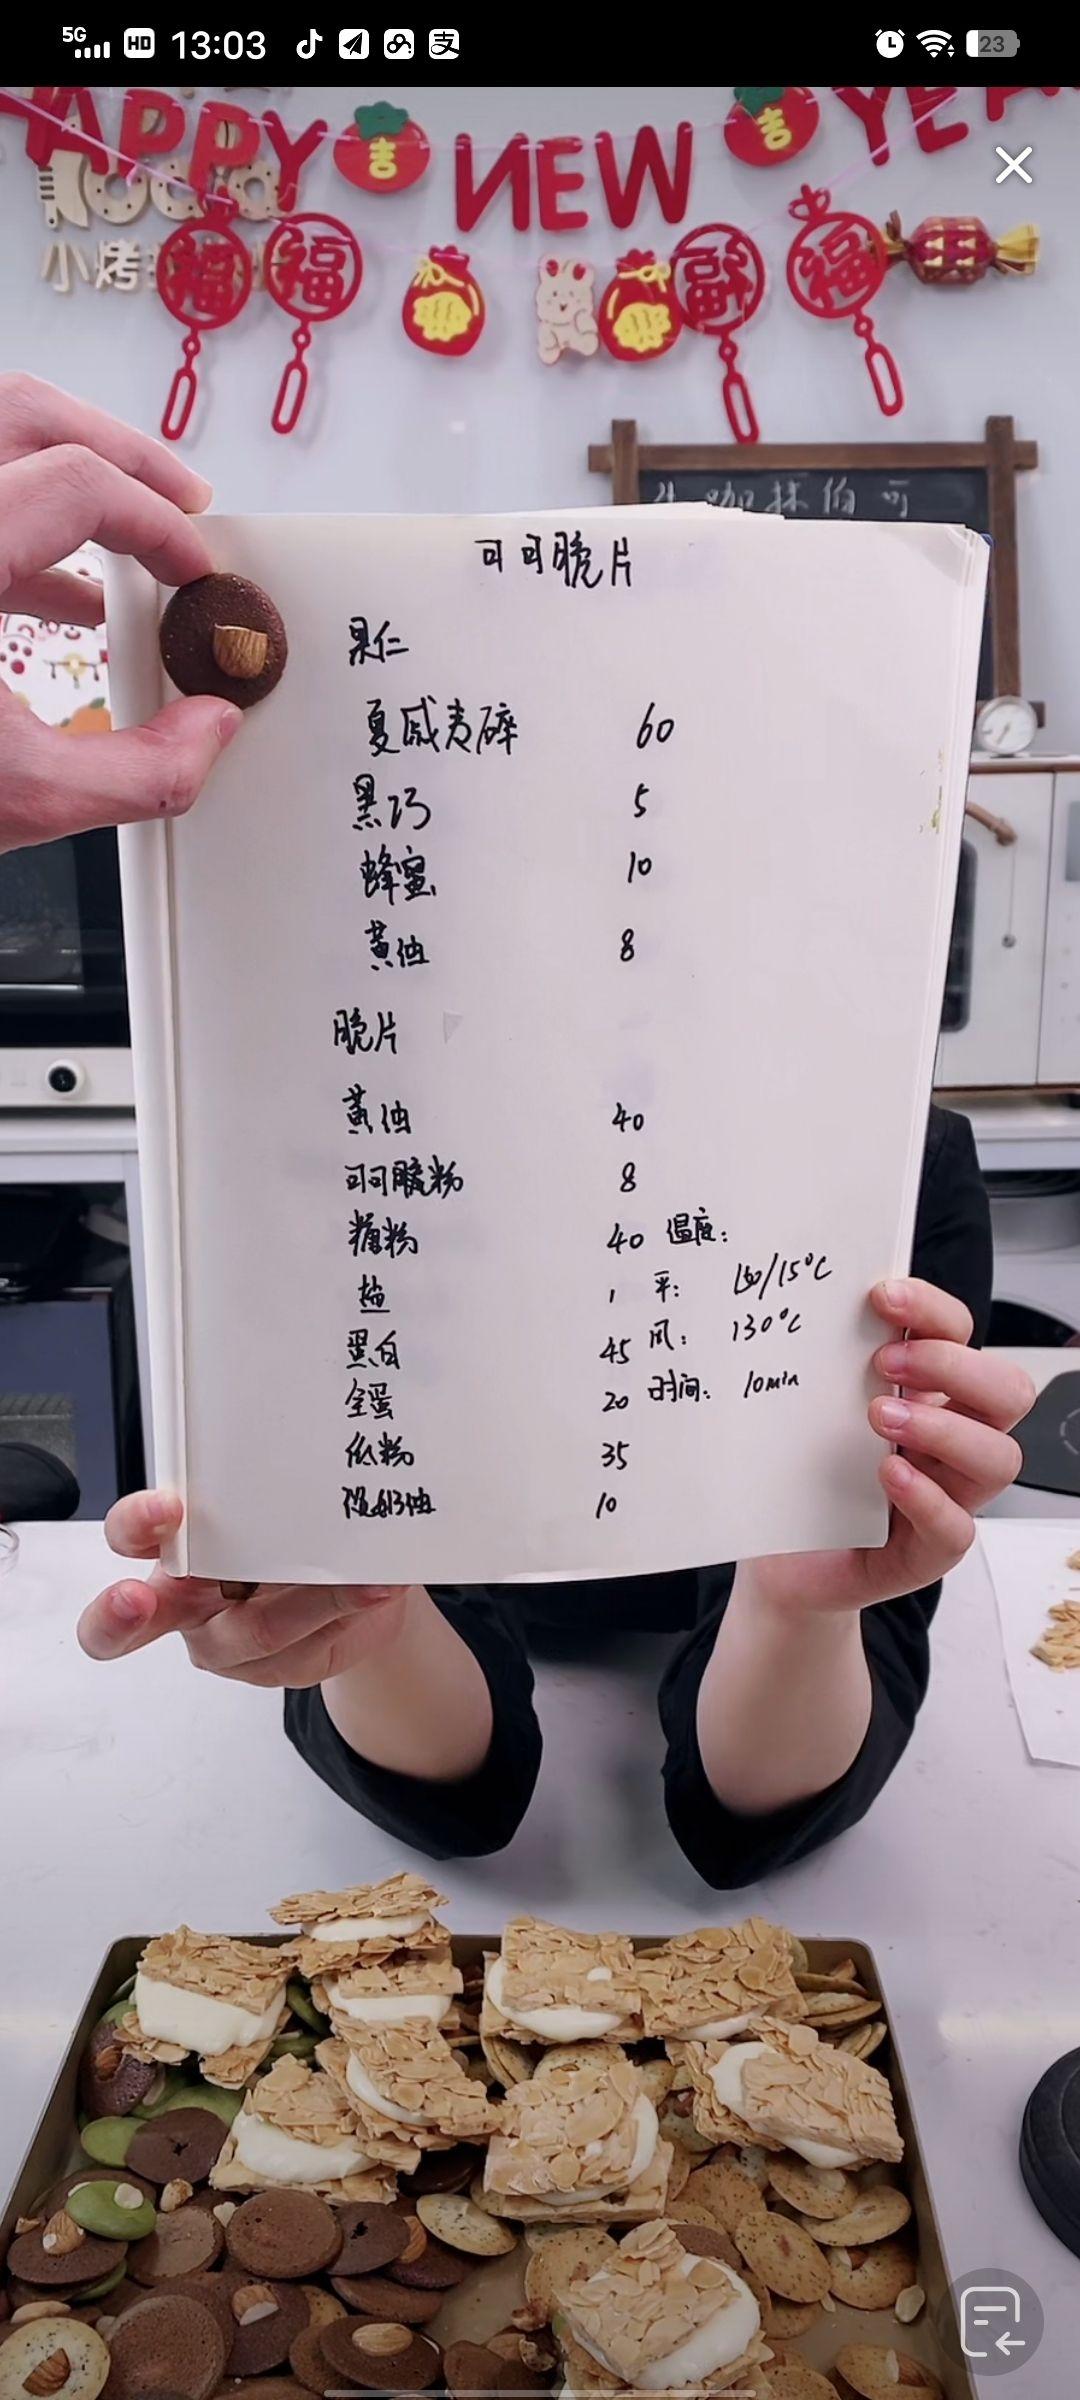 5G HD 13:03 支 23
HAPPY 吉 NEW 吉 YEA
小烤
福 福 福 福
咖 伯可
可可脆片
果仁
夏威夷碎 60
黑巧 5
蜂蜜 10
黄油 8
脆片
黄油 40
可可脆粉 8
糖粉 40 温度:
盐 1 平: 150/15°C
蛋白 45 风: 130°C
全蛋 20 时间: 10min
低粉 35
淡奶油 10